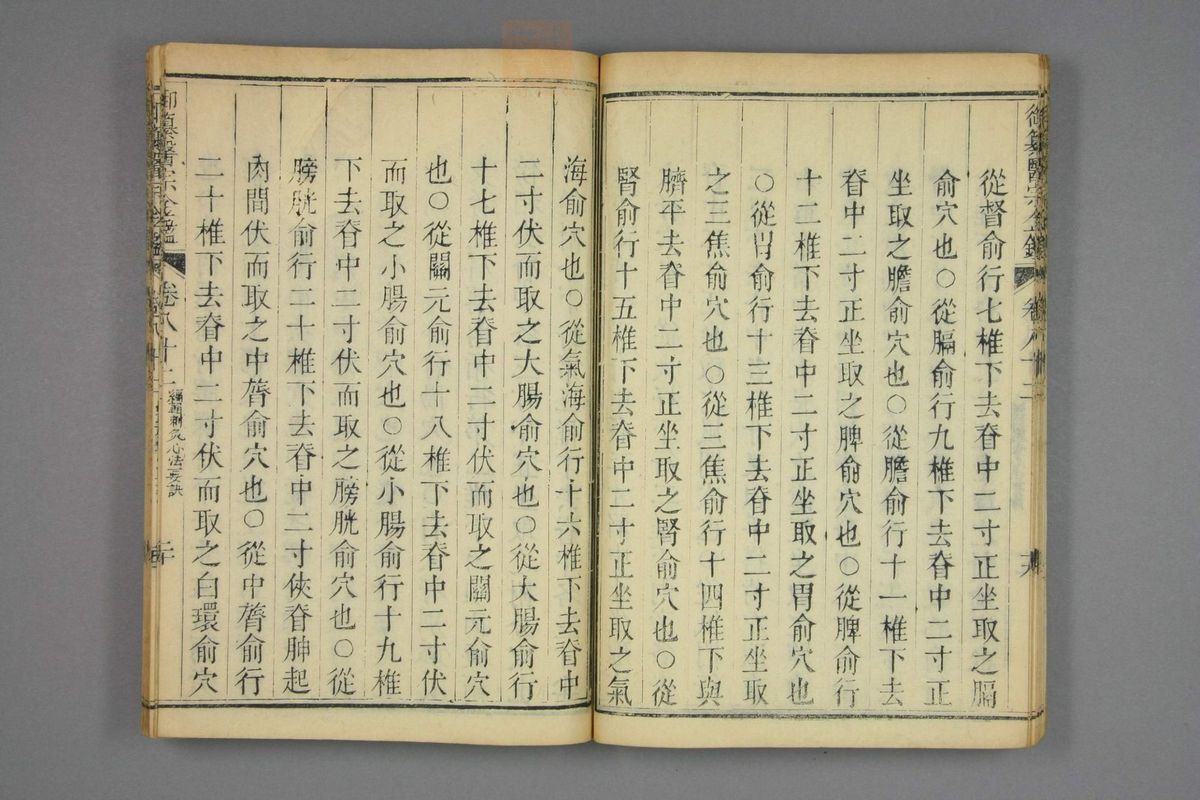 御纂醫宗金鑑 卷八十二
從督俞行七椎下去脊中二寸正坐取之膈
俞穴也○從膈俞行九椎下去脊中二寸正
坐取之膽俞穴也○從膽俞行十一椎下去
脊中二寸正坐取之脾俞穴也○從脾俞行
十二椎下去脊中二寸正坐取之胃俞穴也
○從胃俞行十三椎下去脊中二寸正坐取
之三焦俞穴也○從三焦俞行十四椎下與
臍平去脊中二寸正坐取之腎俞穴也○從
腎俞行十五椎下去脊中二寸正坐取之氣
海俞穴也○從氣海俞行十六椎下去脊中
二寸伏而取之大腸俞穴也○從大腸俞行
十七椎下去脊中二寸伏而取之關元俞穴
也○從關元俞行十八椎下去脊中二寸伏
而取之小腸俞穴也○從小腸俞行十九椎
下去脊中二寸伏而取之膀胱俞穴也○從
膀胱俞行二十椎下去脊中二寸俠脊胂起
肉間伏而取之中膂俞穴也○從中膂俞行
二十椎下去脊中二寸伏而取之白環俞穴
御纂醫宗金鑑 卷八十二 編輯刺灸心法要訣